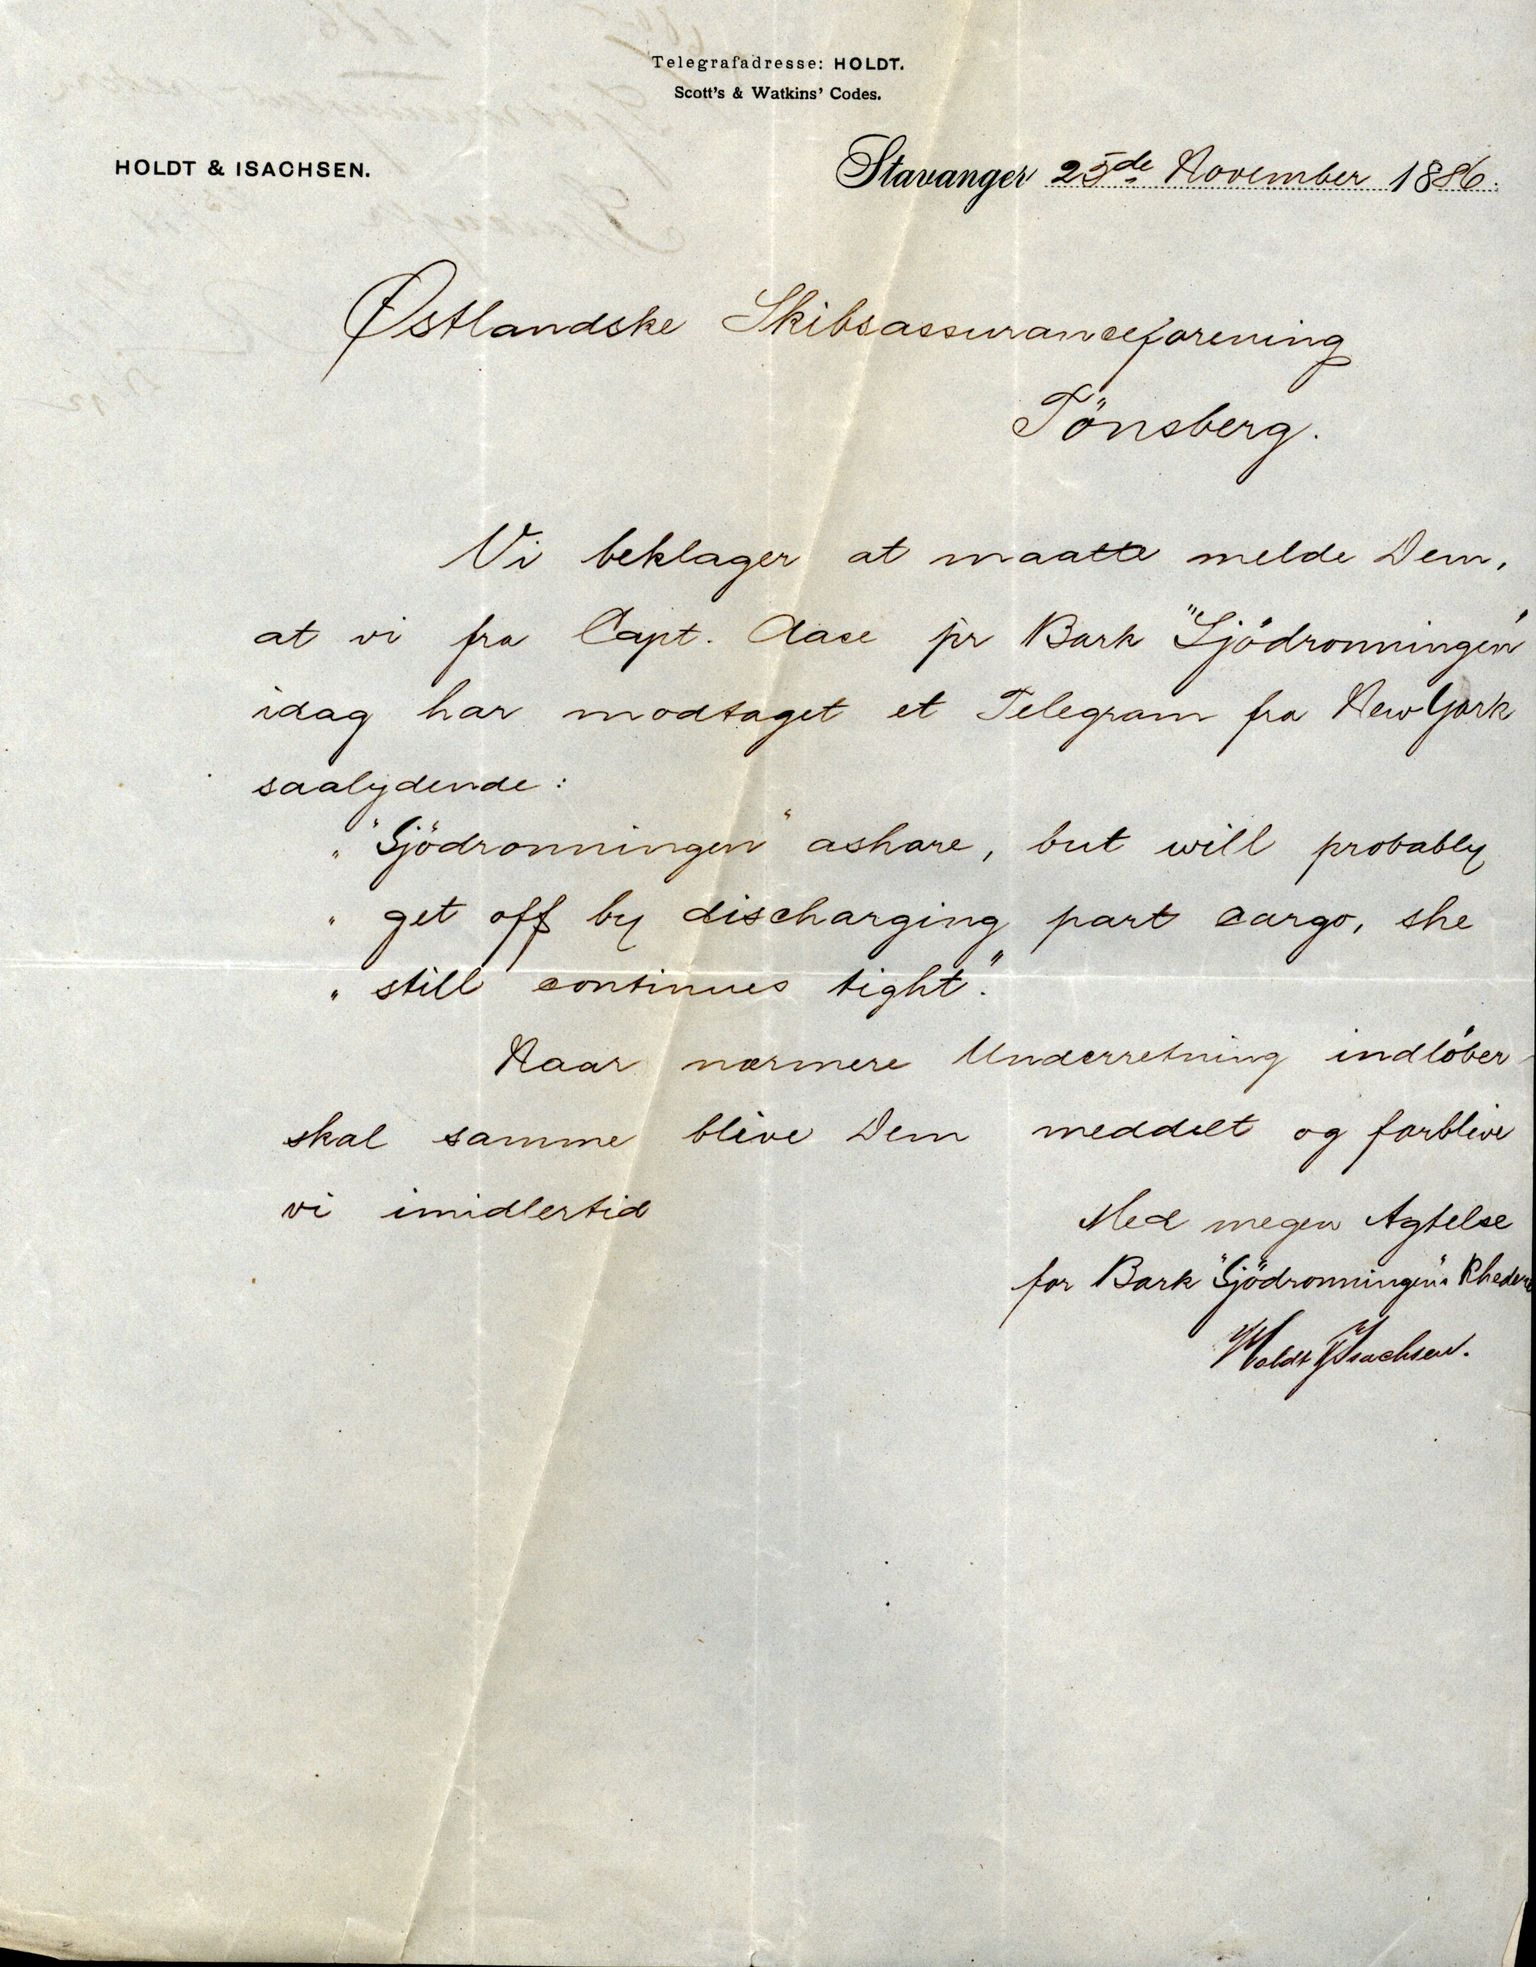 Telegrafadresse: HOLDT.
Scott's & Watkins' Codes.
HOLDT & ISACHSEN.
Stavanger 25de November 1886.
Østlandske Skibsassuranceforening
Tönsberg.
Vi beklager at maatte melde Dem,
at vi fra Capt. Aase pr Bark "Sjödronningen"
idag har modtaget et Telegram fra New York
saalydende:
" "Sjödronningen" ashore, but will probably
" get off by discharging part cargo, she
" still continues tight."
Naar nærmere Underretning indlöber
skal samme blive Dem meddelt og forblive
vi imidlertid
Med megen Agtelse
for Bark "Sjödronningen"s Rhederi
Holdt & Isachsen.